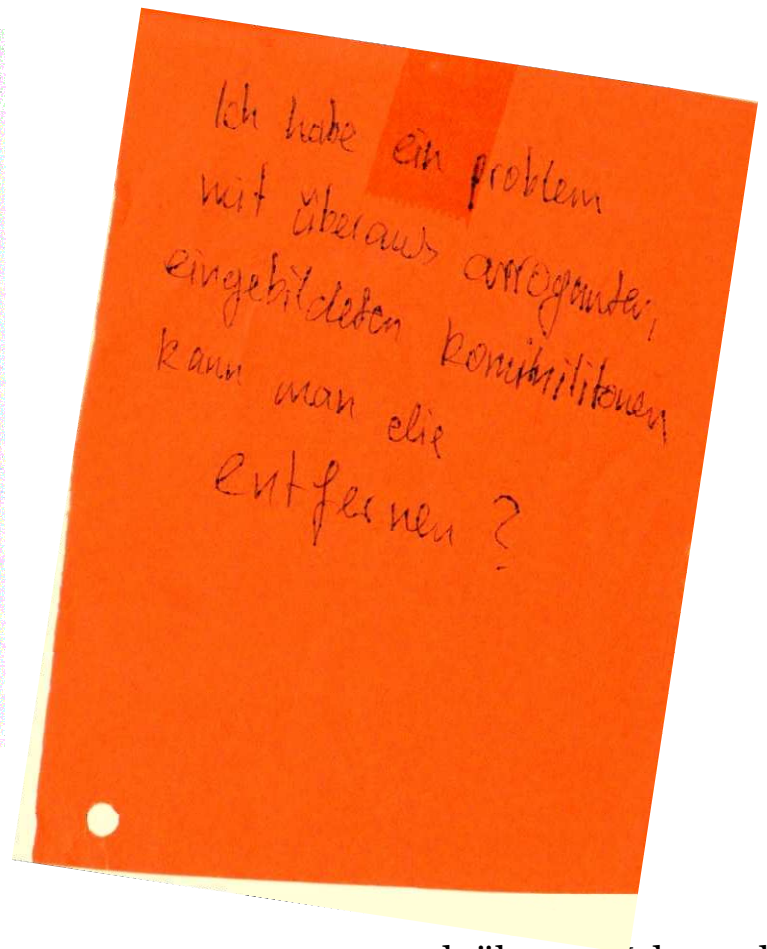 Ich habe ein problem
mit überaus arroganter,
eingebildeten kommilitonen
kann man die
entfernen?